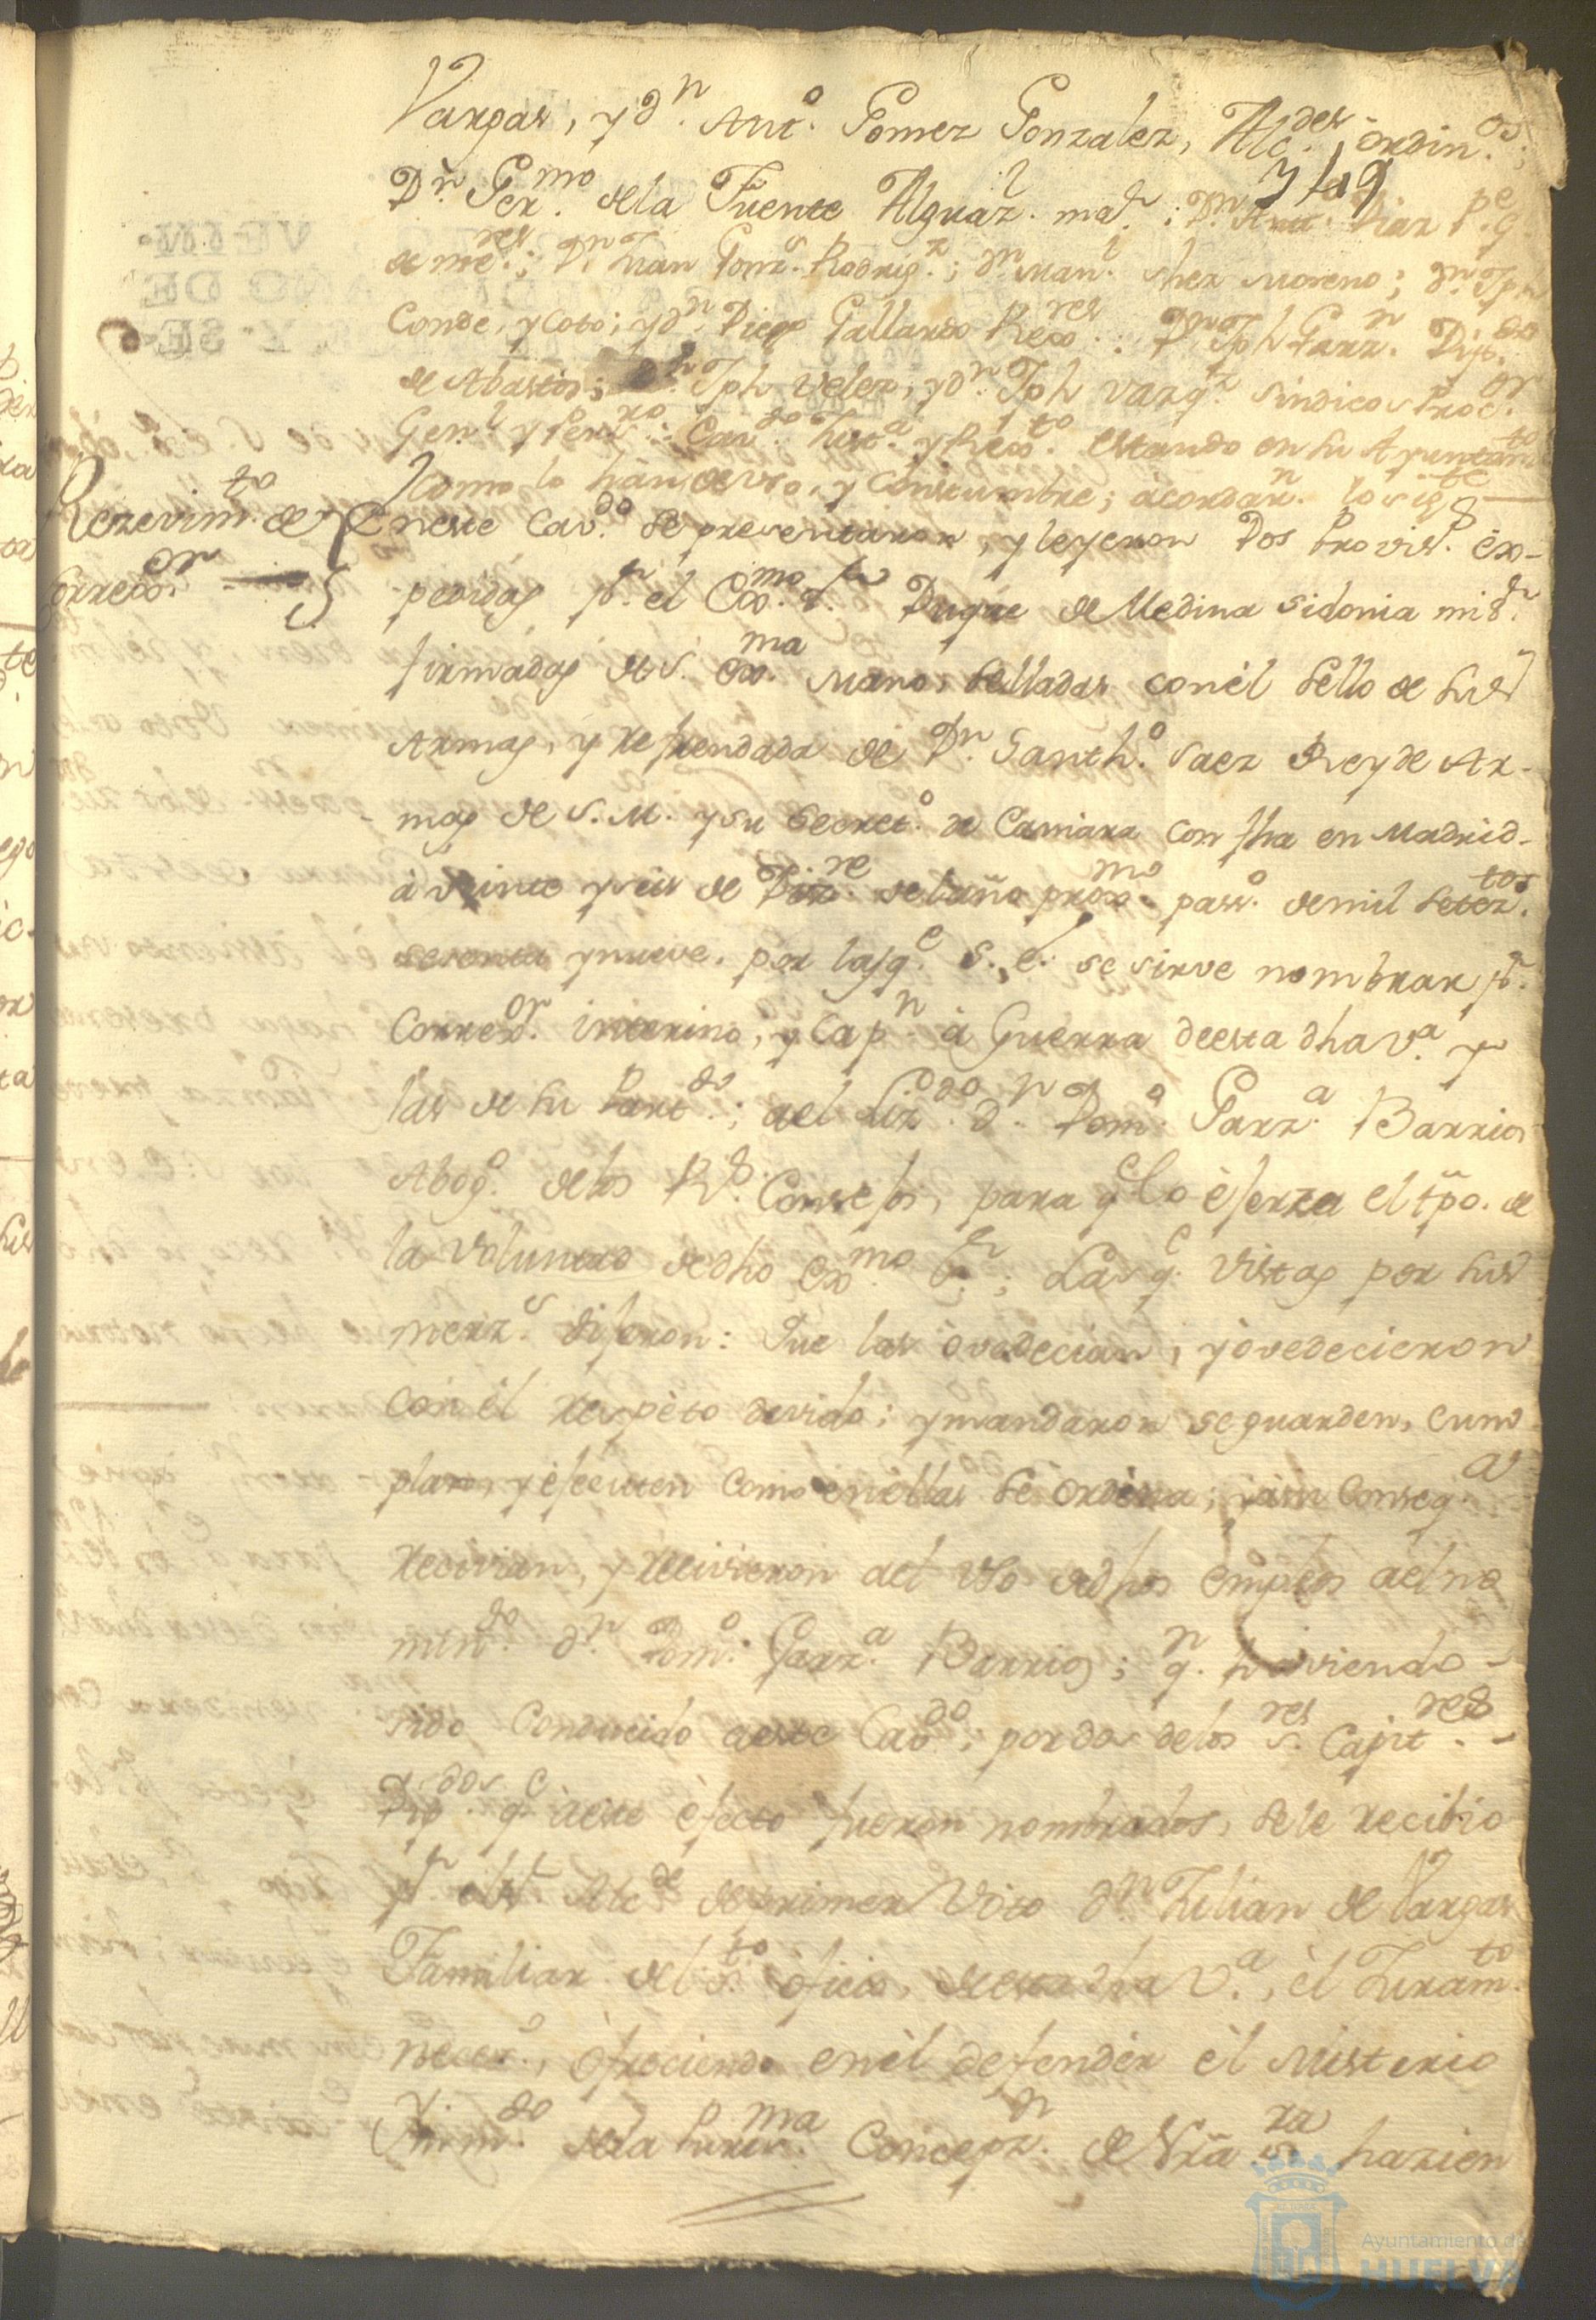 Vargas, y dn. Anto. Gomez Gonzalez, Alcdes. ordins.;
749
Dn. Germo. dela Fuente Alguazl. mar.; Dn. Ant. Diaz Pe. G.
de mres.; Dn. Juan Gonzs. Rodrigz.; dn. Manl. Shez Moreno; dn. Jph
Conde, y Coto; y dn. Diego Gallardo Rexres.: Dn. Jph Garzn. Dipdo.
de Abastos; Dn. Jph Velez, y dn. Jph Vargs. Sindicos Procor.
Genl. y Persro.: Cavdo. Justa. y Rexto. estando en su Ayuntamto.
como lo han de uso, y Constumbre; acordarn. lo sigte.
Rezevimto. de
Correxor.
Eneste Cavdo. se presentaron, y leyeron Dos Proviss. ex-
pedidas pr. el Exmo. Sr. Duque de Medina Sidonia mi Sr.
firmadas de S. Exma. mano, selladas con èl sello de sus
Armas, y refrendada de Dn. Santho. Saez Rey de Ar-
mas de S. M. y su Secreto. de Camara con fha en Madrid
à veinte y seis de Dizre. del año proxmo. passo. de mil setetos.
sesenta y nueve, por las qe. S. E. se sirve nombrar pr.
Correxor. interino, y Capn. à Guerra de esta dha Va. y
las de su Partdo.; ael Lizdo. dn. Domo. Garza. Barrios
Abogo. delos Rs. Consejos, para qe lo èjerza el tpo. de
la voluntad de dho Exmo. Sr.; Las qe. vistas por sus
merzs. dijeron: Que las òvedecian, y òvedecieron
con èl respèto devido; y mandaron se guarden, cum
plan, y èjecuten como en èllas se òrdèna; y àsn Conseqa.
recivian, y recivieron ael uso de dhos empleos ael no
mindo. dn. Domo. Garza. Barrios; qn. haviendo
sido Conducido a este Cavdo.; por dos delos Sres. Capitres.
Dipdos. qe. à este èfecto fueron nombrados, se le recibio
pr. el Sr. Alcde. de primer Voto dn. Julian de Vargas
Familiar del Sto. òficio, de esta dha Va., èl Juramto.
neceso., òfreciendo en èl defendèr èl Misterio
dela Purisma. Concepzn. de Nra Sra hazien
Ayuntamiento de
HUELVA